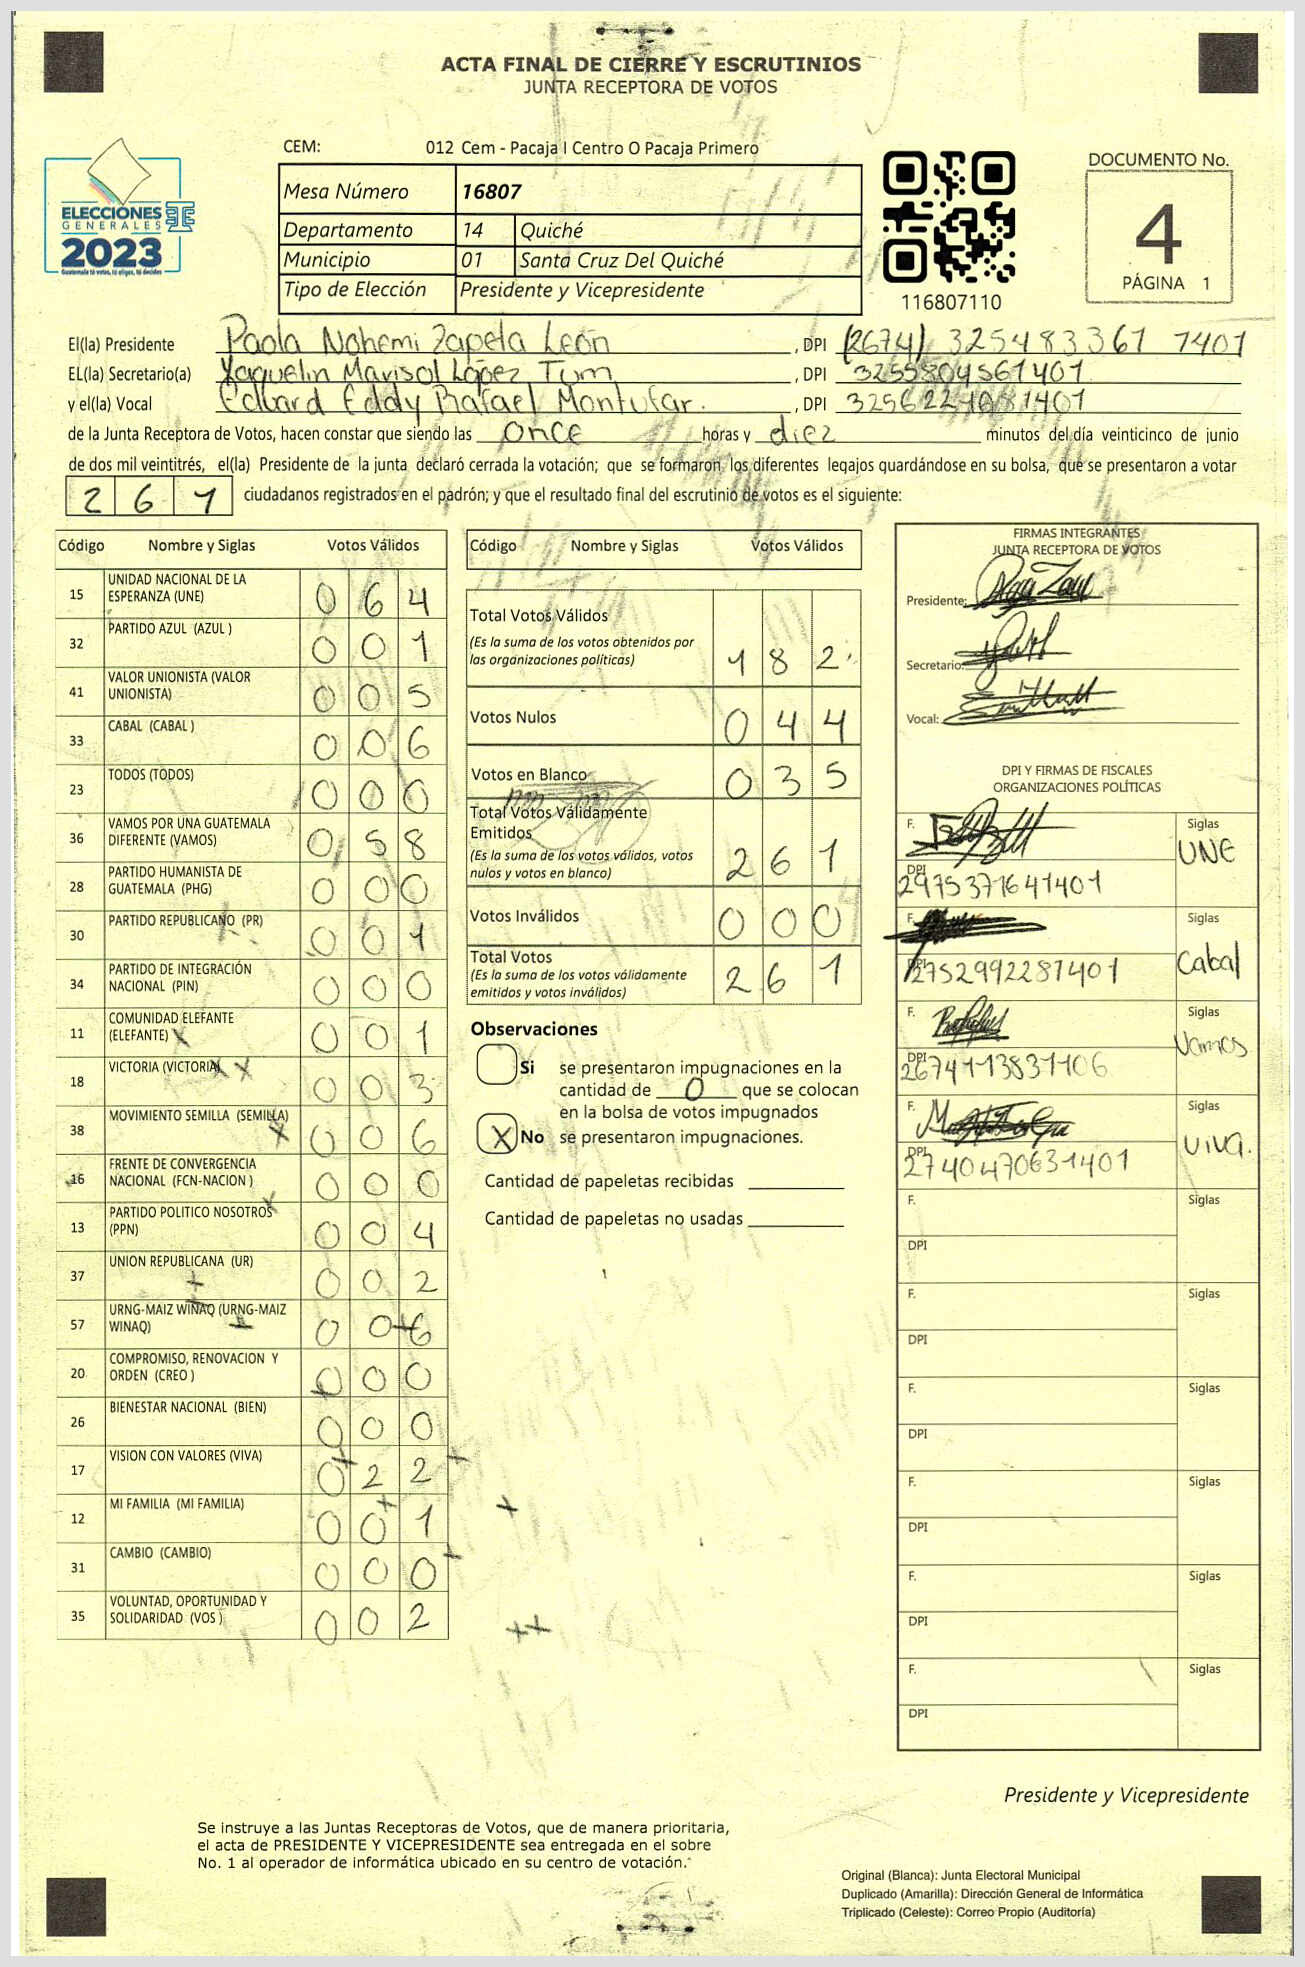 ACTA FINAL DE CIERRE Y ESCRUTINIOS
JUNTA RECEPTORA DE VOTOS
CEM: 012 Cem - Pacaja I Centro O Pacaja Primero
Mesa Número 16807
Departamento 14 Quiché
Municipio 01 Santa Cruz Del Quiché
Tipo de Elección Presidente y Vicepresidente
ELECCIONES
GENERALES
2023
Guatemala tú votas, tú eliges, tú decides
116807110
DOCUMENTO No.
4
PÁGINA 1
El(la) Presidente Paola Nohemi Zapeta León , DPI (2674) 325483361 1401
EL(la) Secretario(a) Yaquelin Marisol López Tum , DPI 3255804561401
y el(la) Vocal Eduard Eddy Rafael Montufar. , DPI
de la Junta Receptora de Votos, hacen constar que siendo las once horas y diez minutos del día veinticinco de junio
de dos mil veintitrés, el(la) Presidente de la junta declaró cerrada la votación; que se formaron los diferentes legajos guardándose en su bolsa, que se presentaron a votar
2 6 1 ciudadanos registrados en el padrón; y que el resultado final del escrutinio de votos es el siguiente:
Código Nombre y Siglas Votos Válidos
15 UNIDAD NACIONAL DE LA ESPERANZA (UNE) 0 6 4
32 PARTIDO AZUL (AZUL ) 0 0 1
41 VALOR UNIONISTA (VALOR UNIONISTA) 0 0 5
33 CABAL (CABAL ) 0 0 6
23 TODOS (TODOS) 0 0 0
36 VAMOS POR UNA GUATEMALA DIFERENTE (VAMOS) 0 5 8
28 PARTIDO HUMANISTA DE GUATEMALA (PHG) 0 0 0
30 PARTIDO REPUBLICANO (PR) 0 0 1
34 PARTIDO DE INTEGRACIÓN NACIONAL (PIN) 0 0 0
11 COMUNIDAD ELEFANTE (ELEFANTE) 0 0 1
18 VICTORIA (VICTORIA) 0 0 3
38 MOVIMIENTO SEMILLA (SEMILLA) 0 0 6
16 FRENTE DE CONVERGENCIA NACIONAL (FCN-NACION ) 0 0 0
13 PARTIDO POLITICO NOSOTROS (PPN) 0 0 4
37 UNION REPUBLICANA (UR) 0 0 2
57 URNG-MAIZ WINAQ (URNG-MAIZ WINAQ) 0 0 6
20 COMPROMISO, RENOVACION Y ORDEN (CREO ) 0 0 0
26 BIENESTAR NACIONAL (BIEN) 0 0 0
17 VISION CON VALORES (VIVA) 0 2 2
12 MI FAMILIA (MI FAMILIA) 0 0 1
31 CAMBIO (CAMBIO) 0 0 0
35 VOLUNTAD, OPORTUNIDAD Y SOLIDARIDAD (VOS ) 0 0 2
Código Nombre y Siglas Votos Válidos
Total Votos Válidos
(Es la suma de los votos obtenidos por
las organizaciones políticas) 1 8 2
Votos Nulos 0 4 4
Votos en Blanco 0 3 5
Total Votos Válidamente
Emitidos
(Es la suma de los votos válidos, votos
nulos y votos en blanco) 2 6 1
Votos Inválidos 0 0 0
Total Votos
(Es la suma de los votos válidamente
emitidos y votos inválidos) 2 6 1
Observaciones
Si se presentaron impugnaciones en la
cantidad de 0 que se colocan
en la bolsa de votos impugnados
X No se presentaron impugnaciones.
Cantidad de papeletas recibidas
Cantidad de papeletas no usadas
FIRMAS INTEGRANTES
JUNTA RECEPTORA DE VOTOS
Presidente:
Secretario:
Vocal:
DPI Y FIRMAS DE FISCALES
ORGANIZACIONES POLÍTICAS
F. Siglas UNE
DPI 2975371641401
F. Siglas Cabal
DPI 2752992281401
F. Siglas Vamos
DPI 2674113831106
F. Siglas VIVA.
DPI 2740470631401
F. Siglas
DPI
F. Siglas
DPI
F. Siglas
DPI
F. Siglas
DPI
F. Siglas
DPI
F. Siglas
DPI
Presidente y Vicepresidente
Se instruye a las Juntas Receptoras de Votos, que de manera prioritaria,
el acta de PRESIDENTE Y VICEPRESIDENTE sea entregada en el sobre
No. 1 al operador de informática ubicado en su centro de votación.
Original (Blanca): Junta Electoral Municipal
Duplicado (Amarilla): Dirección General de Informática
Triplicado (Celeste): Correo Propio (Auditoría)